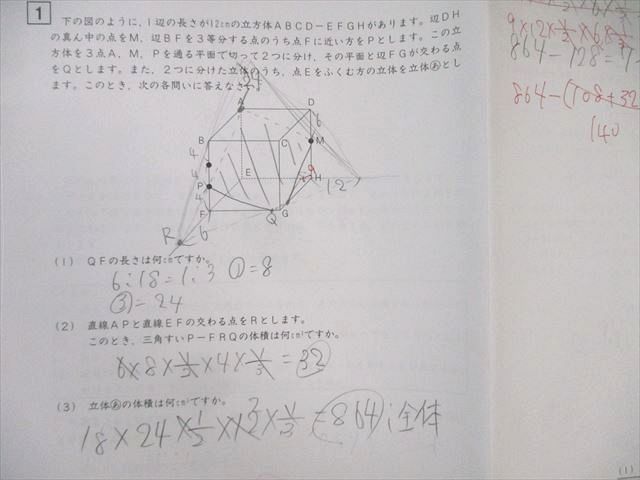 1
下の図のように、1辺の長さが12cmの立方体ABCD-EFGHがあります。辺DH
の真ん中の点をM、辺BFを3等分する点のうち点Fに近い方をPとします。この立
方体を3点A、M、Pを通る平面で切って2つに分け、その平面と辺FGが交わる点
をQとします。また、2つに分けた立体のうち、点Eをふくむ方の立体を立体あとし
ます。このとき、次の各問いに答えなさい。
24
A
D
6
B
C
M
4
4
P
E
9
H
12
4
F
Q
G
R
6
(1) QFの長さは何cmですか。
6:18=1:3 ①=8
③=24
(2) 直線APと直線EFの交わる点をRとします。
このとき、三角すいP-FRQの体積は何cm³ですか。
6×8×1/2×4×1/3=32
(3) 立体あの体積は何cm³ですか。
18×24×1/2×12×1/3=864:全体
864-128=7
864-(108+32
140
(1)